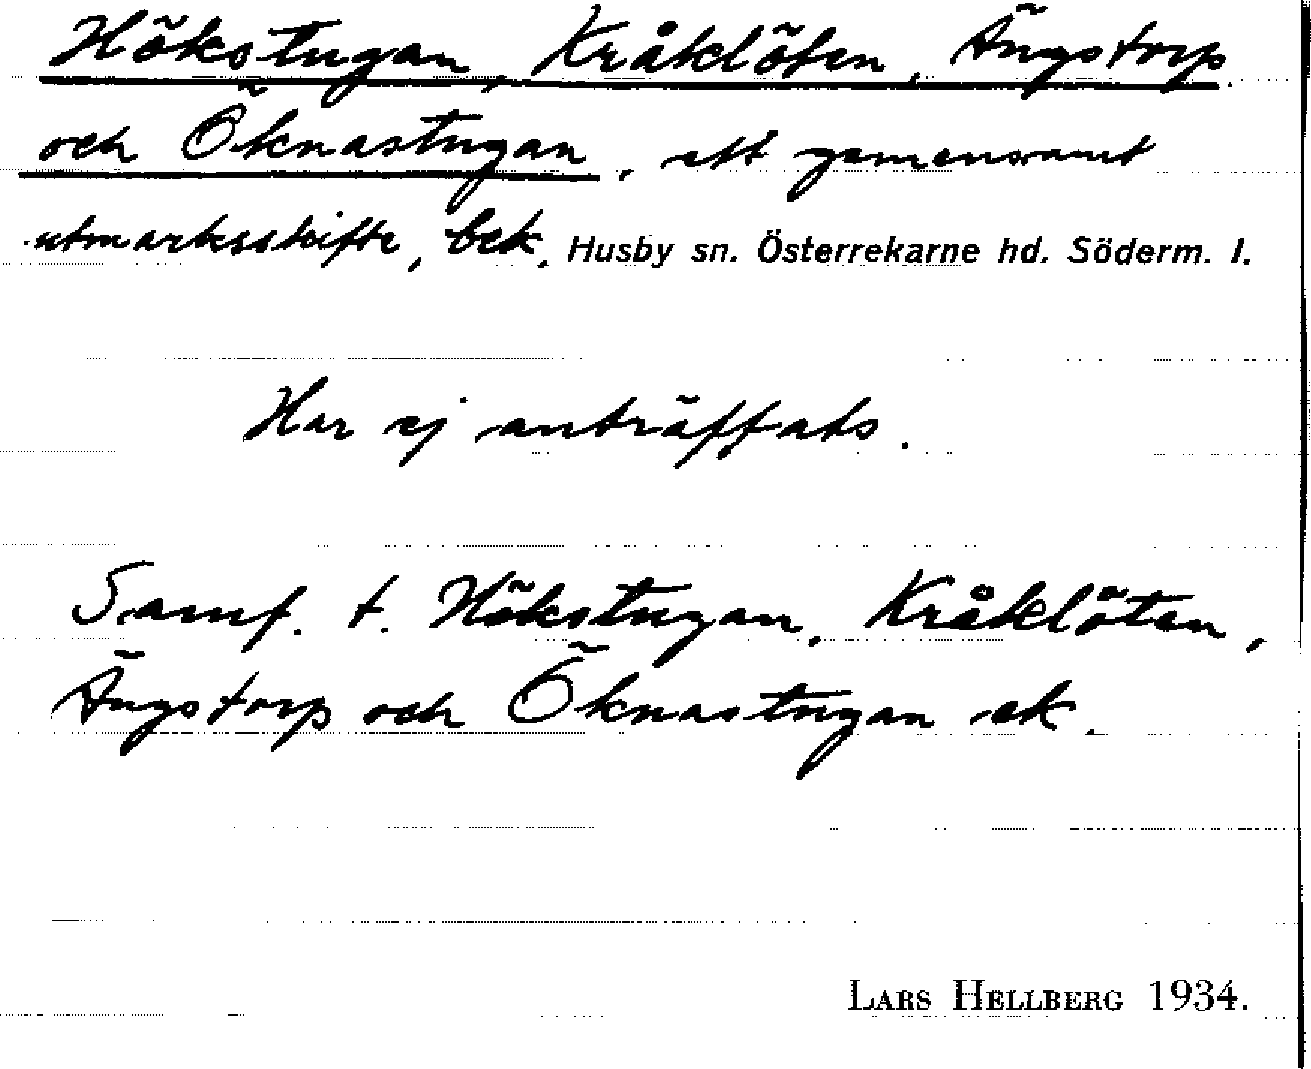 Hökstugan, Kråklöten, Ängstorp
och Öknastugan, ett gemensamt
utmarksskifte, bek. Husby sn. Österrekarne hd. Söderm. l.
Har ej anträffats.
Samf. t. Hökstugan, Kråklöten,
Ängstorp och Öknastugan ek.
LARS HELLBERG 1934.